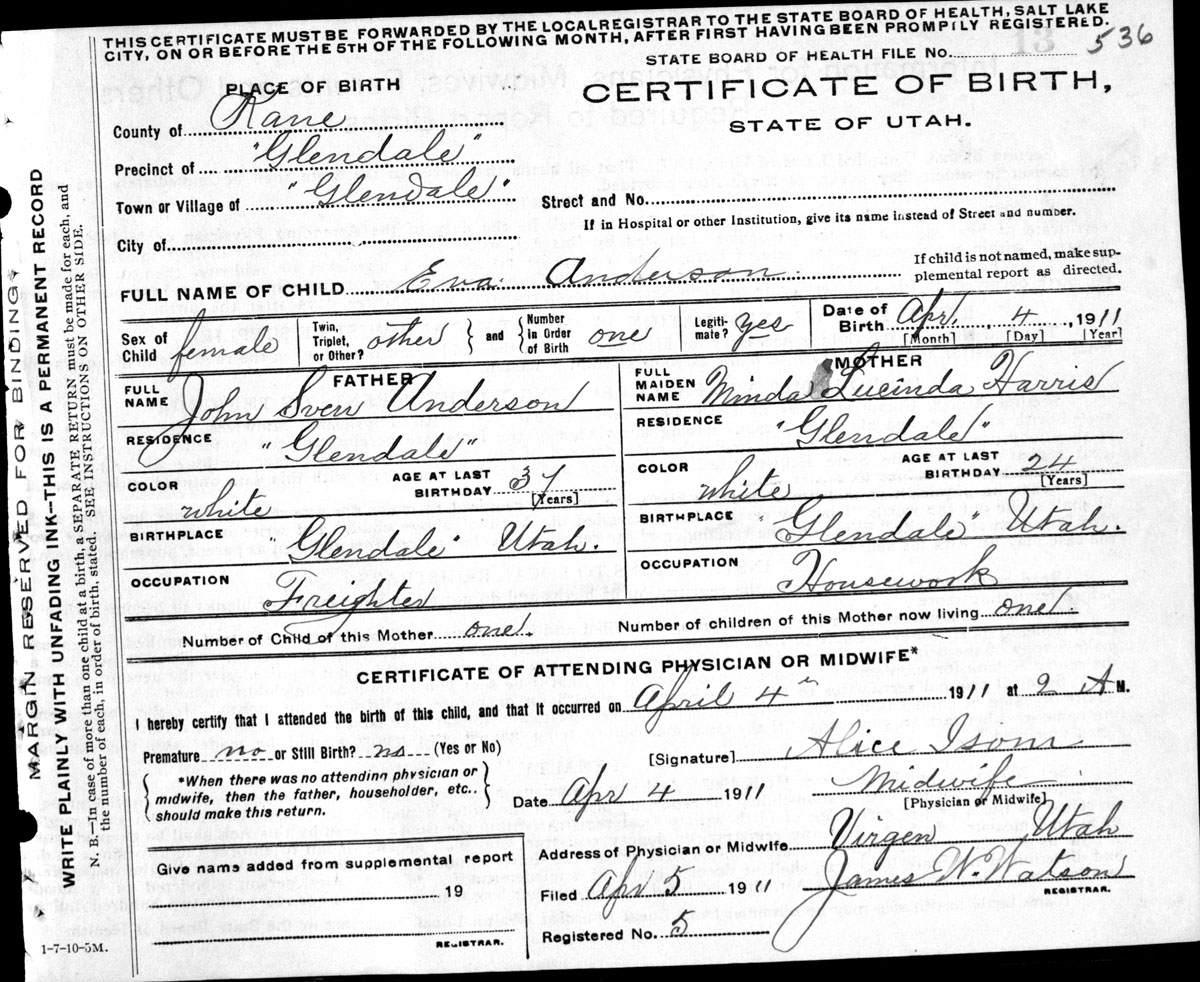 THIS CERTIFICATE MUST BE FORWARDED BY THE LOCALREGISTRAR TO THE STATE BOARD OF HEALTH, SALT LAKE
CITY, ON OR BEFORE THE 5TH OF THE FOLLOWING MONTH, AFTER FIRST HAVING BEEN PROMPILY REGISTERED.
STATE BOARD OF HEALTH FILE NO. 536
CERTIFICATE OF BIRTH,
STATE OF UTAH.
PLACE OF BIRTH
County of Kane
Precinct of "Glendale"
Town or Village of "Glendale"
Street and No.
If in Hospital or other Institution, give its name instead of Street and number.
City of
FULL NAME OF CHILD Eva Anderson
If child is not named, make sup-
plemental report as directed.
Sex of Child female
Twin, Triplet, or Other? other
and
Number In Order of Birth one
Legiti-mate? yes
Date of Birth Apr. 4, 1911
[Month] [Day] [Year]
FATHER
FULL NAME John Sven Anderson
RESIDENCE "Glendale"
COLOR white
AGE AT LAST BIRTHDAY 37
[Years]
BIRTHPLACE "Glendale" Utah.
OCCUPATION Freighter
MOTHER
FULL MAIDEN NAME Minda Lucinda Harris
RESIDENCE "Glendale"
COLOR white
AGE AT LAST BIRTHDAY 24
[Years]
BIRTHPLACE "Glendale Utah.
OCCUPATION Housework
Number of Child of this Mother one.
Number of children of this Mother now living one.
CERTIFICATE OF ATTENDING PHYSICIAN OR MIDWIFE*
I hereby certify that I attended the birth of this child, and that it occurred on April 4th 1911 at 2 A M.
Premature no or Still Birth? no (Yes or No)
*When there was no attending physician or
midwife, then the father, householder, etc.,
should make this return.
[Signature] Alice Isom
Midwife
[Physician or Midwife]
Date Apr 4 1911
Address of Physician or Midwife Virgen Utah
Filed Apr 5 1911 James W. Watson
REGISTRAR.
Registered No. 5
Give name added from supplemental report
19
REGISTRAR.
1-7-10-5M.
MARGIN RESERVED FOR BINDING
WRITE PLAINLY WITH UNFADING INK—THIS IS A PERMANENT RECORD
N. B.—In case of more than one child at a birth, a SEPARATE RETURN must be made for each, and
the number of each, in order of birth, stated. SEE INSTRUCTIONS ON OTHER SIDE.